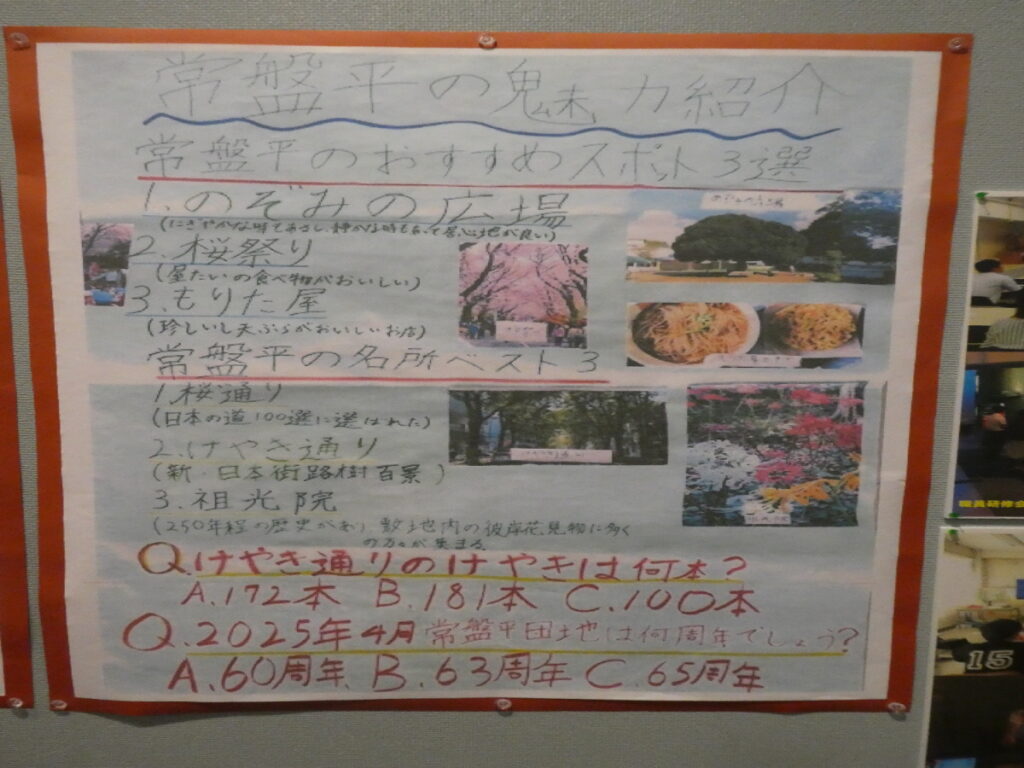 常盤平の魅力紹介
常盤平のおすすめスポット3選
1.のぞみの広場
(にぎやかな時もあるし、静かな時もあって居心地が良い)
2.桜祭り
(屋たいの食べ物がおいしい)
3.もりた屋
(珍しいし天ぷらがおいしいお店)
常盤平の名所ベスト3
1.桜通り
(日本の道100選に選ばれた)
2.けやき通り
(新・日本街路樹百景)
3.祖光院
(250年程の歴史があり、敷地内の彼岸花見物に多く
の方々が集まる。
Q.けやき通りのけやきは何本?
A.172本 B.181本 C.100本
Q.2025年4月常盤平団地は何周年でしょう?
A.60周年 B.63周年 C.65周年
のぞみの広場
けやき通り
職員研修会
15